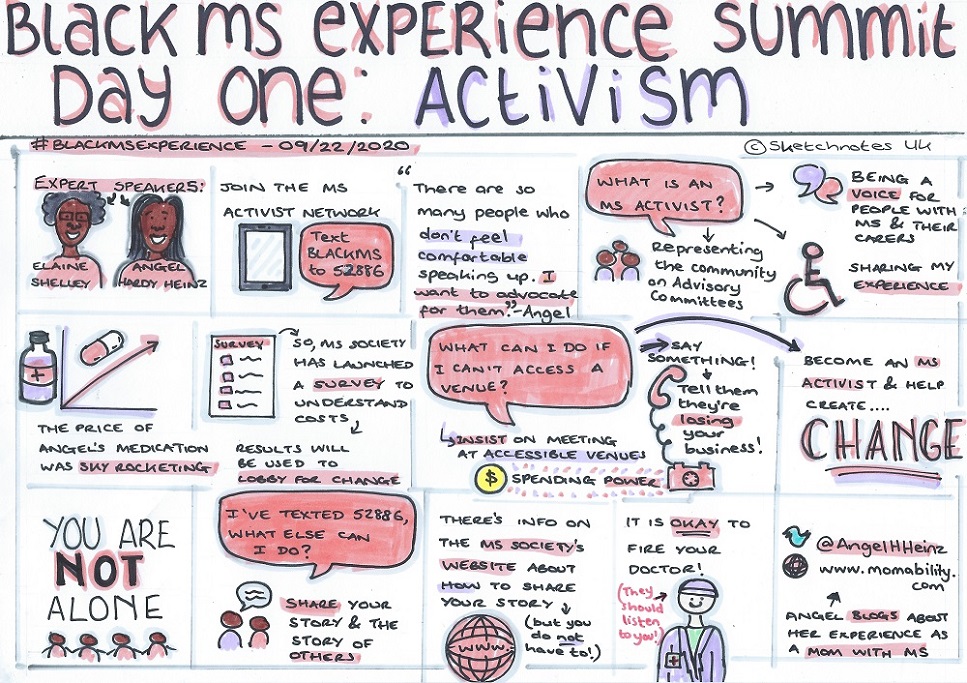 BLACK MS EXPERIENCE SUMMIT
DAY ONE: ACTIVISM
#BLACKMSEXPERIENCE - 09/22/2020
© Sketchnotes UK
EXPERT SPEAKERS:
ELAINE
SHELLEY
ANGEL
HARDY HEINZ
JOIN THE MS
ACTIVIST NETWORK
Text
BLACKMS
to 52886
“
There are so
many people who
don't feel
comfortable
speaking up. I
want to advocate
for them."-Angel
WHAT IS AN
MS ACTIVIST?
Representing
the community
on Advisory
Committees
BEING A
VOICE FOR
PEOPLE WITH
MS & THEIR
CARERS
SHARING MY
EXPERIENCE
THE PRICE OF
ANGEL'S MEDICATION
WAS SKY ROCKETING
SURVEY
SO, MS SOCIETY
HAS LAUNCHED
A SURVEY TO
UNDERSTAND
COSTS
RESULTS WILL
BE USED TO
LOBBY FOR CHANGE
WHAT CAN I DO IF
I CAN'T ACCESS A
VENUE?
INSIST ON MEETING
AT ACCESSIBLE VENUES
$ SPENDING POWER
SAY
SOMETHING!
Tell them
they're
losing
your
business!
BECOME AN MS
ACTIVIST & HELP
CREATE....
CHANGE
YOU ARE
NOT
ALONE
I'VE TEXTED 52886,
WHAT ELSE CAN
I DO?
SHARE YOUR
STORY & THE
STORY OF
OTHERS
THERE'S INFO ON
THE MS SOCIETY'S
WEBSITE ABOUT
HOW TO SHARE
YOUR STORY
(but you
do not
have to!)
www.
IT IS OKAY TO
FIRE YOUR
DOCTOR!
(They
should
listen
to you!)
@AngelHHeinz
www.momability.
com
ANGEL BLOGS ABOUT
HER EXPERIENCE AS
A MOM WITH MS